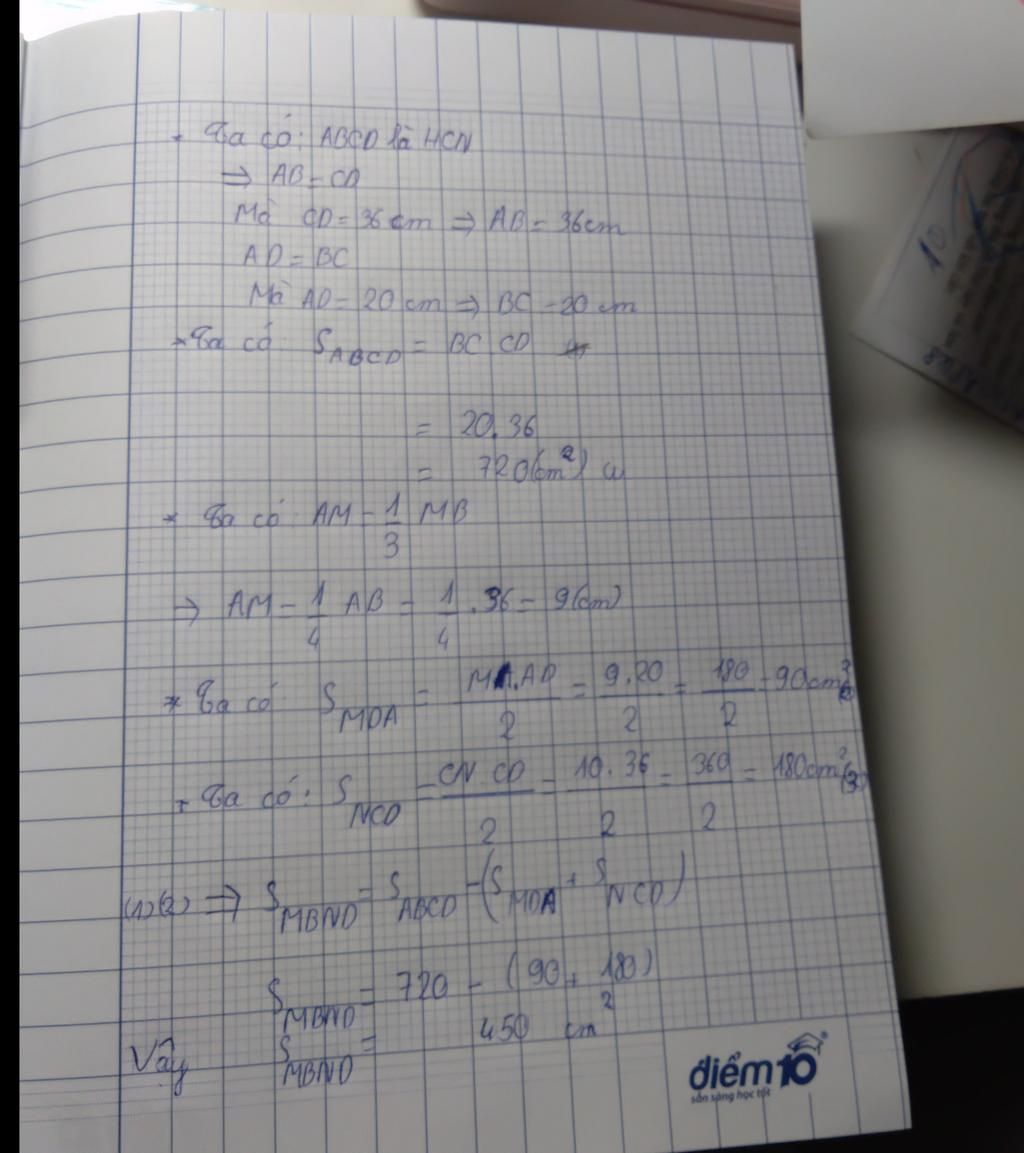 * Ta có: ABCD là HCN
⇒ AB = CD
Mà CD = 36 cm ⇒ AB = 36cm
AD = BC
Mà AD = 20 cm ⇒ BC = 20 cm
* Ta có S_ABCD = BC CD
= 20.36
= 720(cm²)
* Ta có AM = 1/3 MB
⇒ AM = 1/4 AB = 1/4 .36 = 9(cm)
* Ta có S_MDA = MA.AD/2 = 9.20/2 = 180/2 = 90cm²
+ Ta có: S_NCD = CN CD/2 = 10.36/2 = 360/2 = 180cm² (3)
(1)(2) ⇒ S_MBND = S_ABCD - (S_MDA + S_NCD)
S_MBND = 720 - (90 + 180)
Vậy S_MBND = 450 cm²
điểm10
sẵn sàng học tốt
10